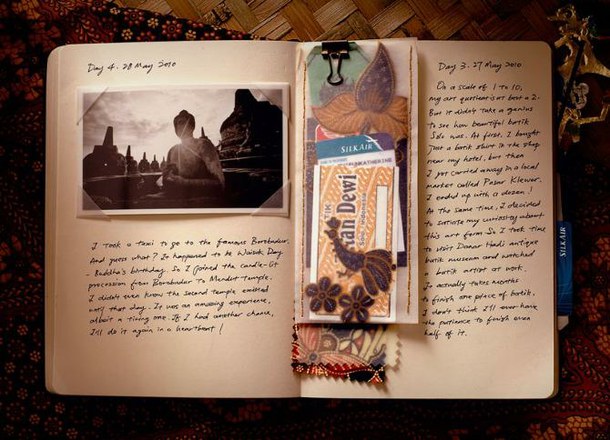 Day 4. 28 May 2010
I took a taxi to go to the famous Borobudur.
And guess what? It happened to be Waisak Day
- Buddha's birthday. So I joined the candle-lit
procession from Borobudur to Mendut Temple.
I didn't even know the second temple existed
until that day. It was an amazing experience,
albeit a tiring one. If I had another chance,
I'll do it again in a heartbeat!
SILKAIR
Dewi
Day 3. 27 May 2010
On a scale of 1 to 10,
my art quotient is at best a 2.
But it didn't take a genius
to see how beautiful batik
Solo was. At first, I bought
just a batik shirt in the shop
near my hotel, but then
I got carried away in a local
market called Pasar Klewer.
I ended up with a dozen!
At the same time, I decided
to satisfy my curiosity about
this art form. So I took time
to visit Danar Hadi antique
batik museum and watched
a batik artist at work.
It actually takes months
to finish one piece of batik.
I don't think I'll ever have
the patience to finish even
half of it.
SILKAIR